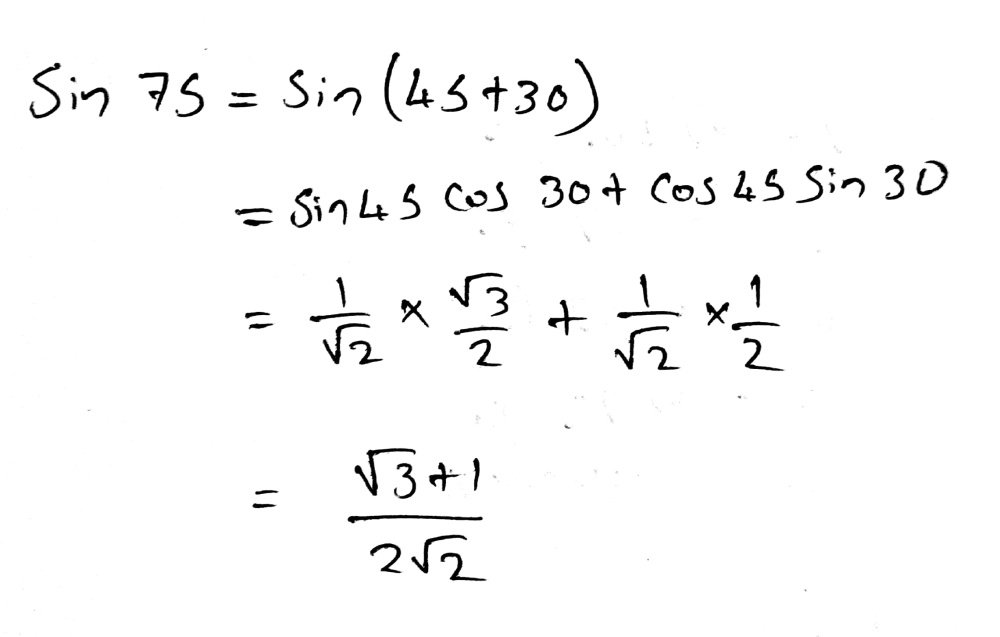 Sin 75 = Sin (45+30)
= Sin 45 Cos 30 + Cos 45 Sin 30
= 1/√2 × √3/2 + 1/√2 × 1/2
= √3+1/2√2